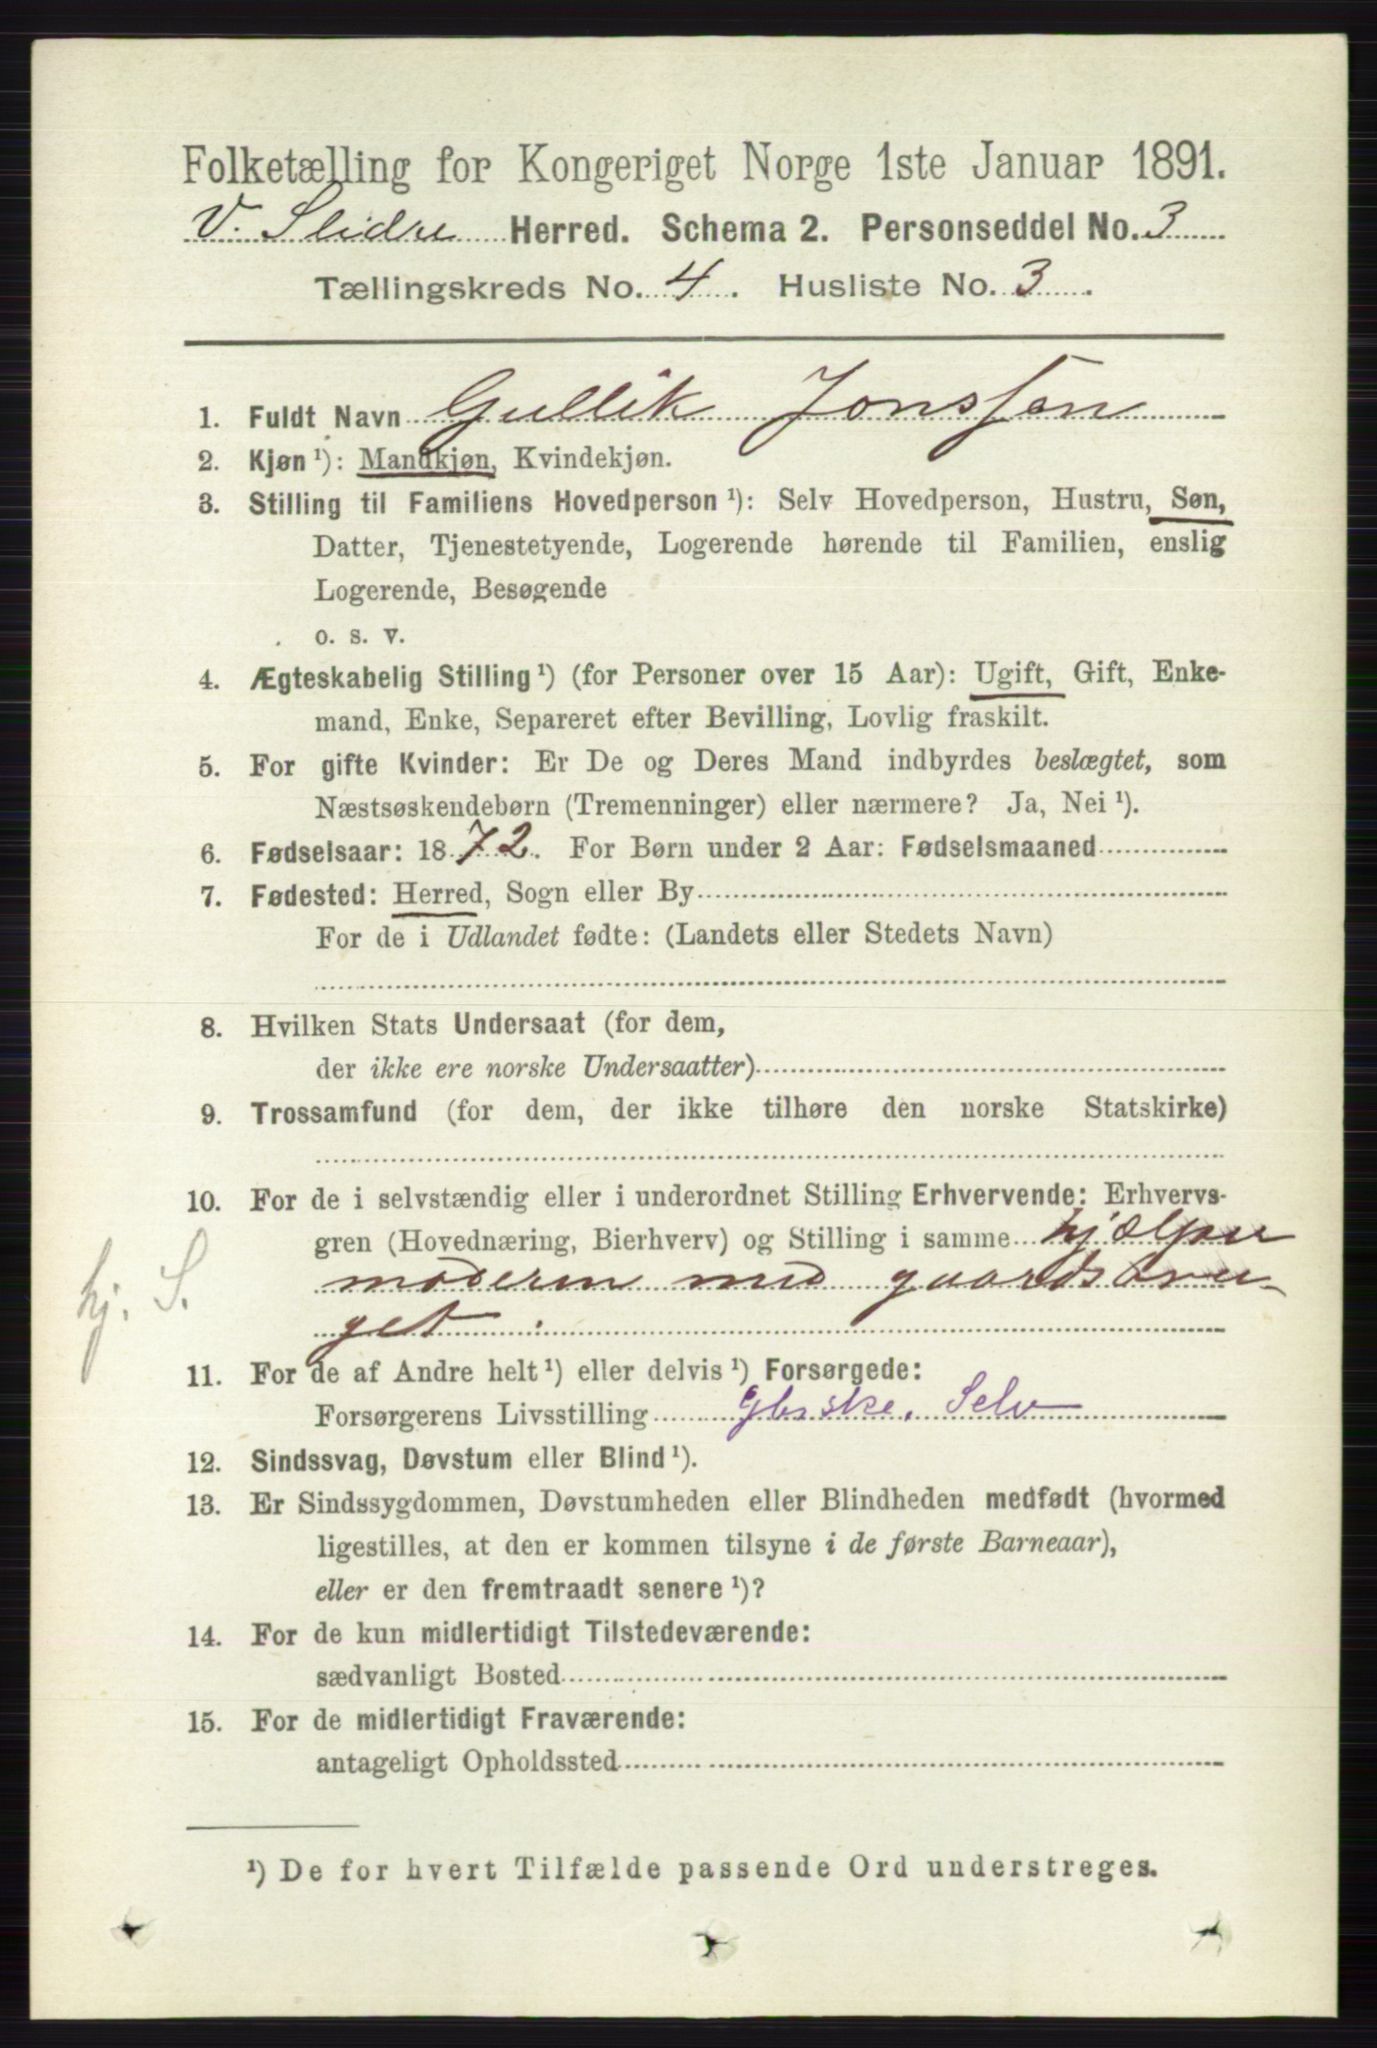 Folketælling for Kongeriget Norge 1ste Januar 1891.
V. Slidre Herred. Schema 2. Personseddel No. 3
Tællingskreds No. 4. Husliste No. 3.
1. Fuldt Navn Gullik Jonssen
2. Kjøn ¹): Mandkjøn, Kvindekjøn.
3. Stilling til Familiens Hovedperson ¹): Selv Hovedperson, Hustru, Søn,
Datter, Tjenestetyende, Logerende hørende til Familien, enslig
Logerende, Besøgende
o. s. v.
4. Ægteskabelig Stilling ¹) (for Personer over 15 Aar): Ugift, Gift, Enke-
mand, Enke, Separeret efter Bevilling, Lovlig fraskilt.
5. For gifte Kvinder: Er De og Deres Mand indbyrdes beslægtet, som
Næstsøskendebørn (Tremenninger) eller nærmere? Ja, Nei ¹).
6. Fødselsaar: 1872. For Børn under 2 Aar: Fødselsmaaned
7. Fødested: Herred, Sogn eller By
For de i Udlandet fødte: (Landets eller Stedets Navn)
8. Hvilken Stats Undersaat (for dem,
der ikke ere norske Undersaatter)
9. Trossamfund (for dem, der ikke tilhøre den norske Statskirke)
10. For de i selvstændig eller i underordnet Stilling Erhvervende: Erhvervs-
gren (Hovednæring, Bierhverv) og Stilling i samme hjælper
moderen med gaardsbru-
get.
hj. S.
11. For de af Andre helt ¹) eller delvis ¹) Forsørgede:
Forsørgerens Livsstilling Gbrske. Selv
12. Sindssvag, Døvstum eller Blind ¹).
13. Er Sindssygdommen, Døvstumheden eller Blindheden medfødt (hvormed
ligestilles, at den er kommen tilsyne i de første Barneaar),
eller er den fremtraadt senere ¹)?
14. For de kun midlertidigt Tilstedeværende:
sædvanligt Bosted
15. For de midlertidigt Fraværende:
antageligt Opholdssted
¹) De for hvert Tilfælde passende Ord understreges.